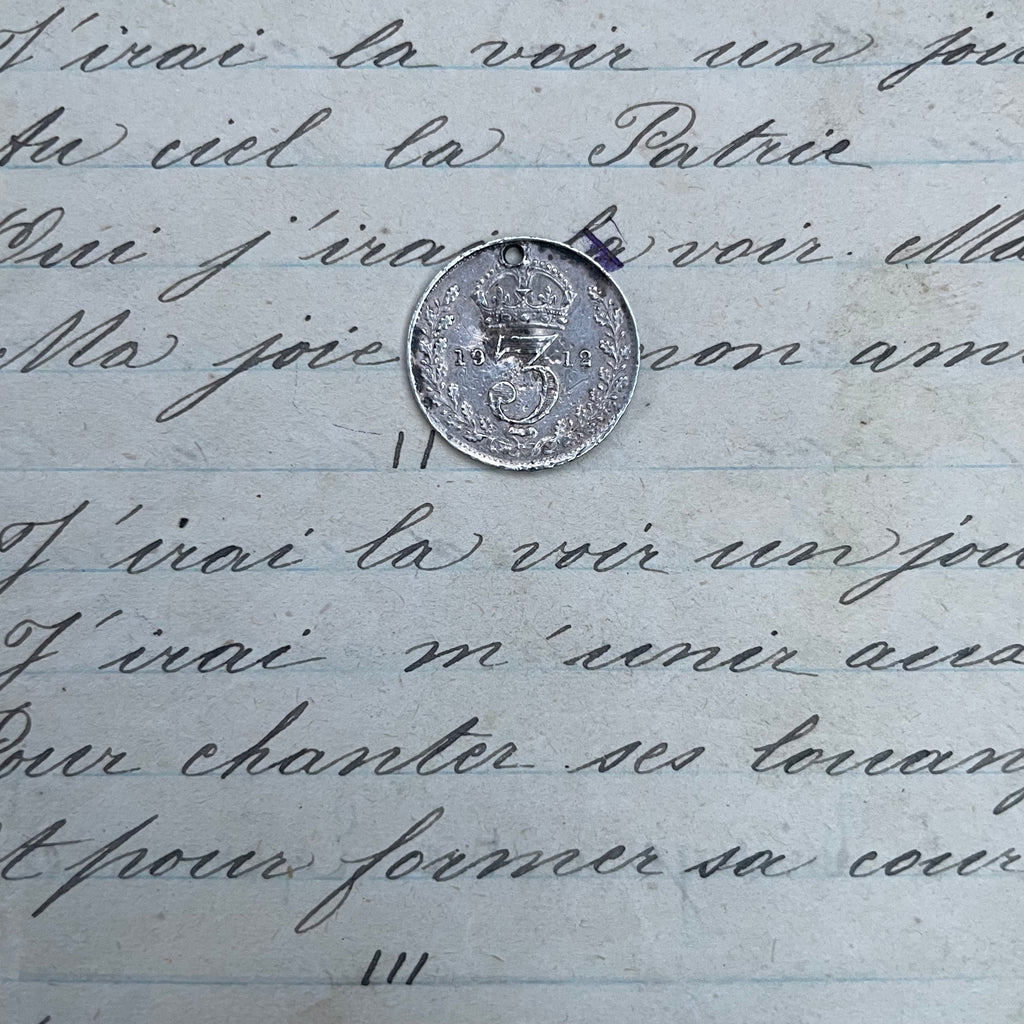 J'irai la voir un jou
Au ciel la Patrie
Oui j'irai la voir Ma
Ma joie mon am
19 3 12
II
J'irai la voir un jou
J'irai m'unir aus
Pour chanter ses louang
Et pour former sa cour
III